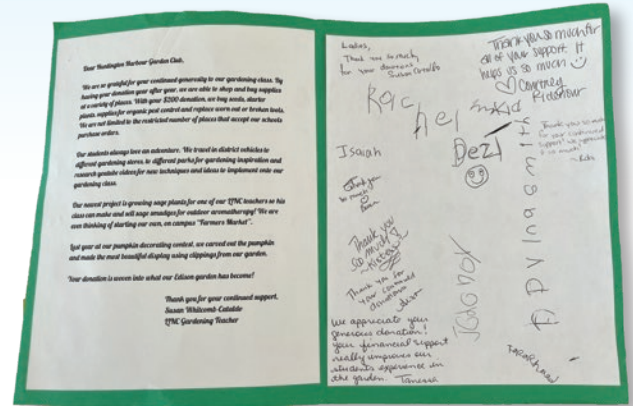 Dear Huntington Harbour Garden Club,
We are so grateful for your continued generosity to our gardening class. By
having your donation year after year, we are able to shop and buy supplies
at a variety of places. With your $200 donation, we buy seeds, starter
plants, supplies for organic pest control and replace worn out or broken tools.
We are not limited to the restricted number of places that accept our schools
purchase orders.
Our students always love an adventure. We travel in district vehicles to
different gardening stores, to different parks for gardening inspiration and
research youtube videos for new techniques and ideas to implement onto our
gardening class.
Our newest project is growing sage plants for one of our teachers so his
class can make and sell sage smudges for outdoor aromatherapy! We are
even thinking of starting our own, on campus "Farmers Market".
Last year at our pumpkin decorating contest, we carved out the pumpkin
and made the most beautiful display using clippings from our garden.
Your donation is woven into what our Edison garden has become!
Thank you for your continued support,
Susan Whitcomb-Cataldo
Gardening Teacher
Ladies,
Thank you so much
for your donations
Susan Cataldo
Thank you so much for
all of your support It
helps us so much
Courtney
Ridenour
Rachel
Isaiah
Dezi
Thank you so much
for your continued
support! We appreciate
it so much!
Thank you
so much
Thank you
so much!
Thank you for
your continued
donations
We appreciate your
generous donation!
your financial support
really improves our
students experience in
the garden. Tanessa